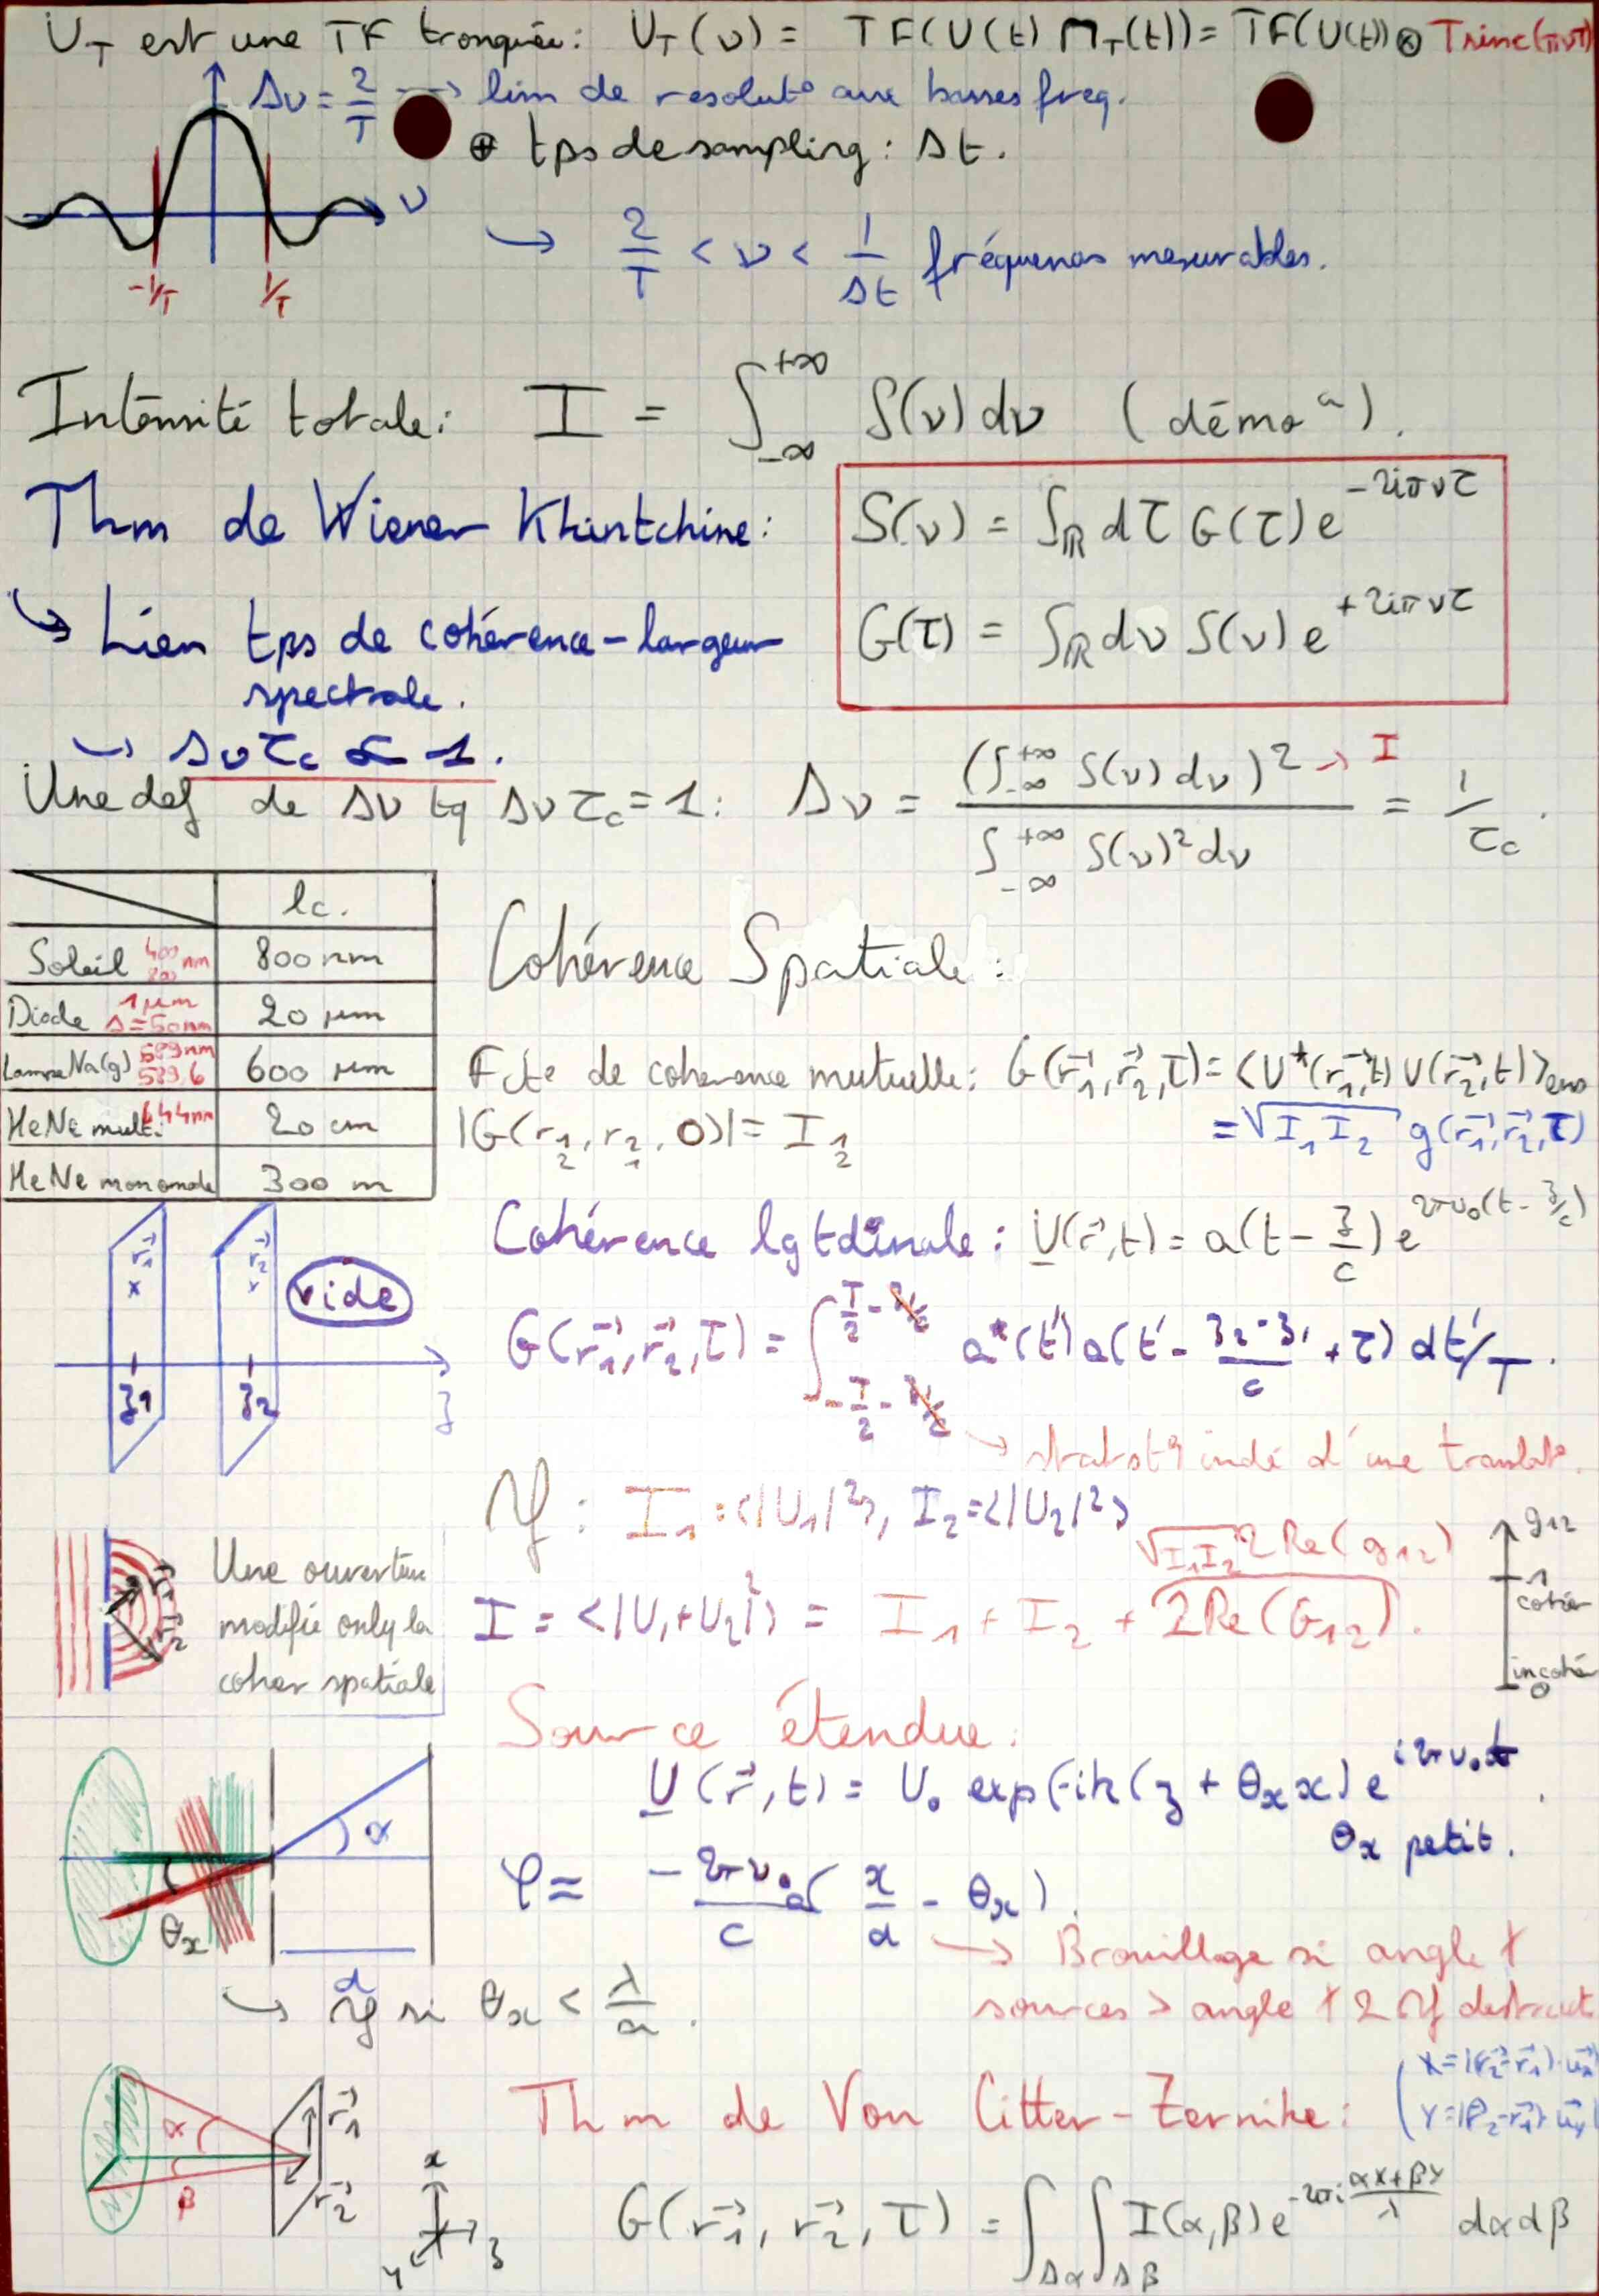 U_T est une TF tronquée : U_T(ν) = TF(U(t) Π_T(t)) = TF(U(t)) ⊗ T sinc(πνT)
Δν = 2/T → lim de resolut° aux basses freq.
⊕ tps de sampling : Δt.
ν
-1/T 1/T
→ 2/T < ν < 1/Δt fréquences mesurables.
Intensité totale : I = ∫_{-∞}^{+∞} S(ν) dν (démo ).
Thm de Wiener Khintchine :
S(ν) = ∫_ℝ dτ G(τ) e^{-2iπντ}
G(τ) = ∫_ℝ dν S(ν) e^{+2iπντ}
↳ Lien tps de cohérence - largeur
spectrale.
→ Δν τc ∝ 1.
Une def de Δν tq Δν τc = 1 : Δν = (∫_{-∞}^{+∞} S(ν) dν)² → I / ∫_{-∞}^{+∞} S(ν)² dν = 1/τc .
lc.
Soleil 400 nm 800 | 800 nm
Diode 1 μm Δ=50nm | 20 μm
Lampe Na(g) 589nm 589,6 | 600 μm
HeNe multi. 644nm | 20 cm
HeNe monomode | 300 m
Cohérence Spatiale :
Fcte de coherence mutuelle : G(r⃗1, r⃗2, τ) = <U*(r⃗1, t) U(r⃗2, t)>ens
= √(I1 I2) g(r⃗1, r⃗2, τ)
|G(r_1/2, r_2/1, 0)| = I_1/2
r⃗1 r⃗2
x x
vide
z1 z2 z
Cohérence lgtdinale : U(r⃗, t) = a(t - z/c) e^{2πν0(t - z/c)}
G(r⃗1, r⃗2, τ) = ∫_{-T/2 - z1/c}^{T/2 - z1/c} a*(t') a(t' - (z2 - z1)/c + τ) dt'/T .
→ indé d'une translat°.
: I1 : <|U1|²>, I2 = <|U2|²>
√(I1 I2) 2Re(g12)
I = <|U1 + U2|²> = I1 + I2 + 2Re(G12).
g12
1
cohér
incohér
0
r⃗1
r⃗2
Une ouverture
modifie only la
coher spatiale
Source étendue :
U(r⃗, t) = U0 exp(-ik(z + θx x) e^{i2πν0t} .
θx petit.
φ = -2πν0/c a( x/d - θx).
→ Brouillage si angle †
sources > angle † 2 destruct
α
θx
d
↳ si θx < λ/a .
Thm de Von Citter-Zernike :
( X = |(r⃗2 - r⃗1) · u⃗x|
Y = |(r⃗2 - r⃗1) · u⃗y|
α
β
r⃗1
r⃗2
x
y z
G(r⃗1, r⃗2, τ) = ∫_{Δα} ∫_{Δβ} I(α, β) e^{-2πi (αX + βY)/λ} dα dβ